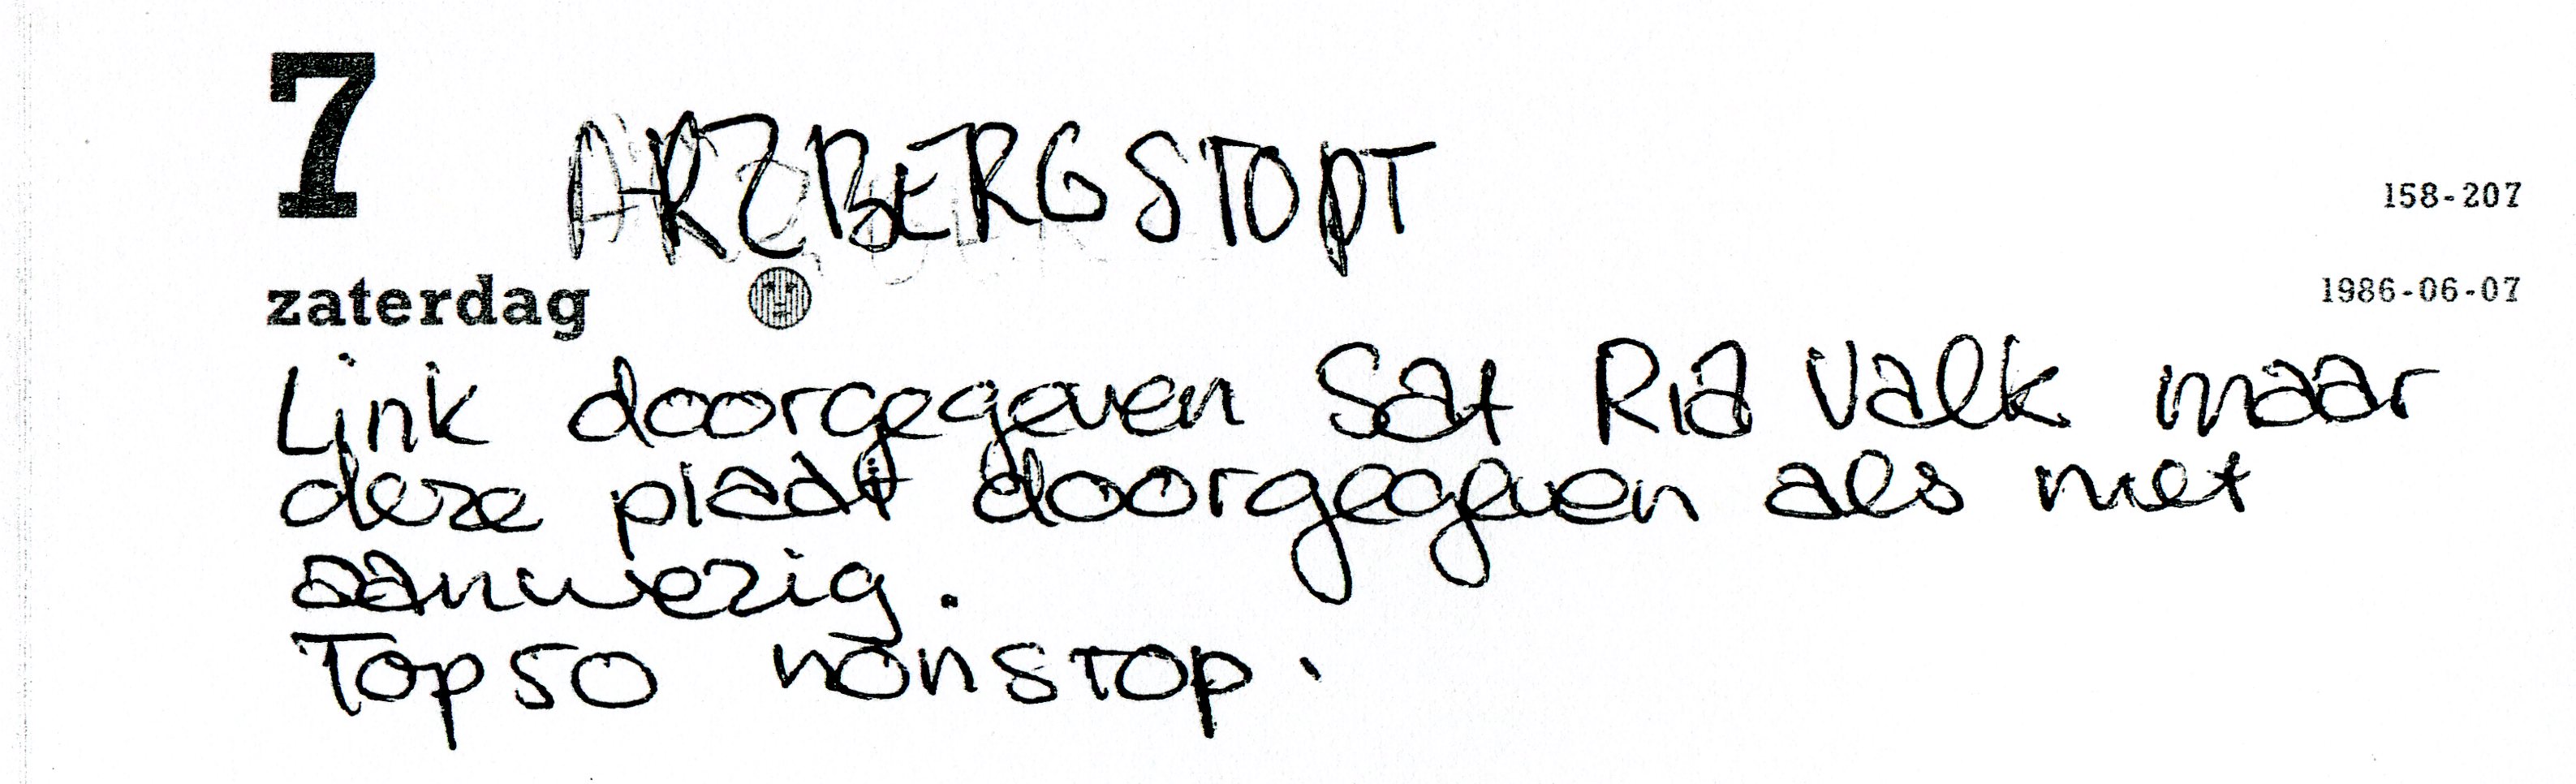 7
ARZBERG STOPT
158-207
zaterdag
1986-06-07
Link doorgegeven Sat Ria Valk maar
deze plaat doorgegeven als niet
aanwezig.
Top 50 nonstop.